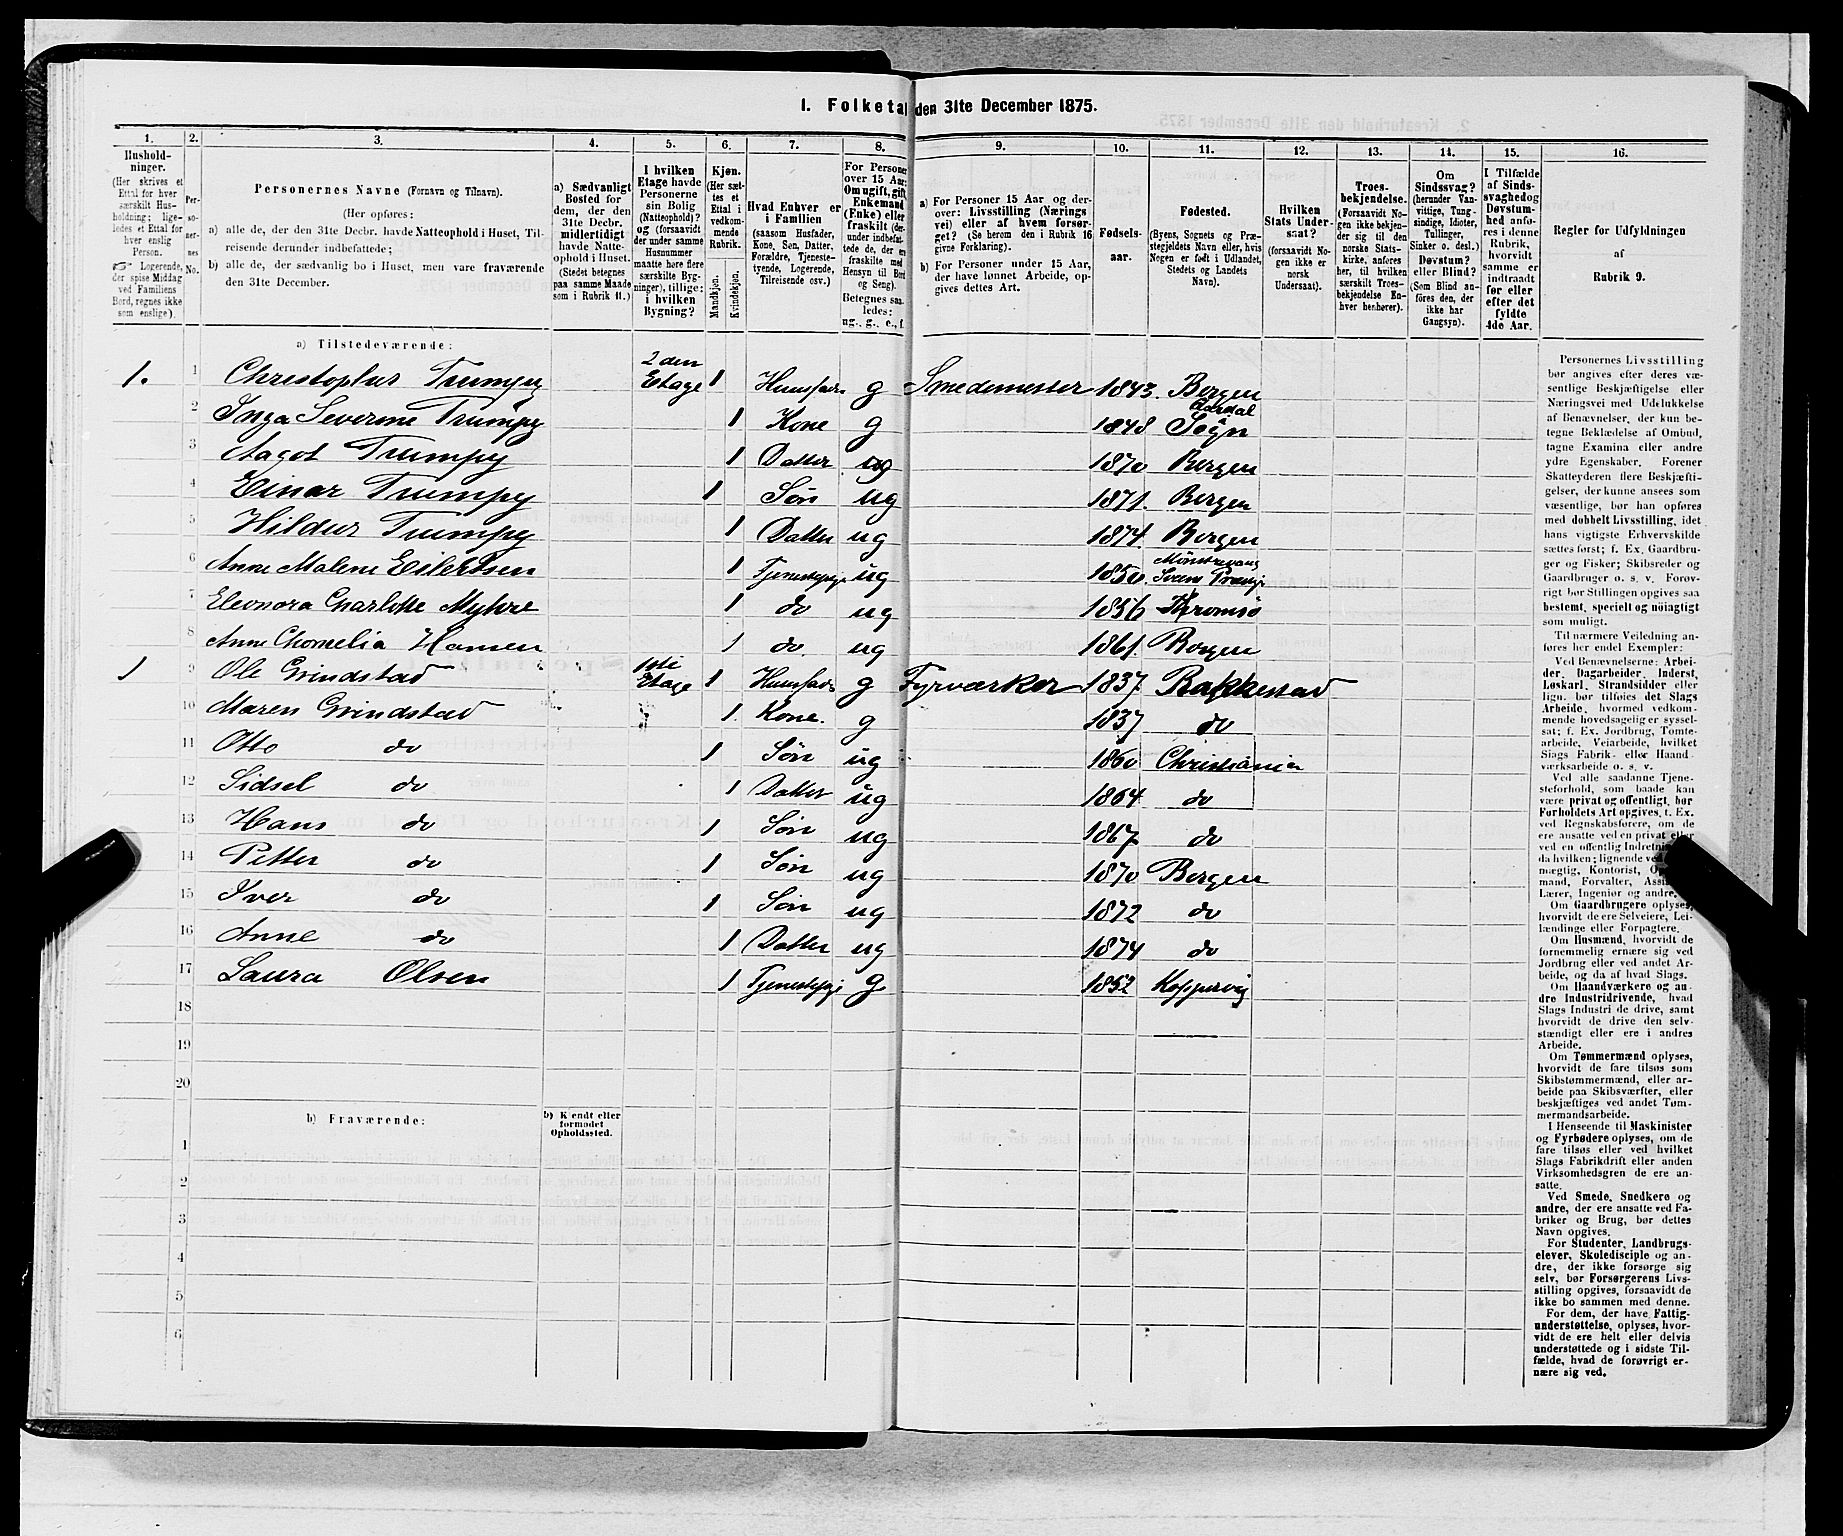 1. Folketal den 31te December 1875.
1. 2. 3. 4. 5. 6. 7. 8. 9. 10. 11. 12. 13. 14. 15. 16.
Hushold-
ninger.
(Her skrives et
Ettal for hver
særskilt Hus-
holdning; lige-
ledes et Ettal for
hver enslig
Person.
Logerende,
der spise Middag
ved Familiens
Bord, regnes ikke
som enslige).
Per-
so-
ner-
nes
No.
Personernes Navne (Fornavn og Tilnavn).
(Her opføres:
a) alle de, der den 31te Decbr. havde Natteophold i Huset, Til-
reisende derunder indbefattede;
b) alle de, der sædvanlig bo i Huset, men vare fraværende
den 31te December.
a) Sædvanligt
Bosted for
dem, der den
31te Decbr.
midlertidigt
havde Natte-
ophold i Huset.
(Stedet betegnes
paa samme Maade
som i Rubrik 11.)
I hvilken
Etage havde
Personerne
sin Bolig
(Natteophold)?
og (forsaavidt
der under samme
Husnummer
maatte høre flere
særskilte Byg-
ninger), tillige:
i hvilken
Bygning?
Kjøn.
(Her sæt-
tes et
Ettal i
vedkom-
mende
Rubrik.
Mandkjøn.
Kvindekjøn.
Hvad Enhver er
i Familien
(saasom Husfader,
Kone, Søn, Datter,
Forældre, Tjeneste-
tyende, Logerende,
Tilreisende osv.)
For Personer
over 15 Aar:
Om ugift, gift,
Enkemand
(Enke) eller
fraskilt (der-
under indbefat-
tede de, der ere
fraskilte med
Hensyn til Bord
og Seng).
Betegnes saa-
ledes:
ug., g., e., f.
a) For Personer 15 Aar og der-
over: Livsstilling (Nærings
vei) eller af hvem forsør-
get? (Se herom den i Rubrik 16
givne Forklaring).
b) For Personer under 15 Aar,
der have lønnet Arbeide, op-
gives dettes Art.
Fødsels-
aar.
Fødested.
(Byens, Sognets og Præ-
stegjeldets Navn eller, hvis
Nogen er født i Udlandet,
Stedets og Landets
Navn).
Hvilken
Stats Under-
saat?
(forsaavidt No-
gen ikke er
norsk
Undersaat).
Troes-
bekjendelse.
(Forsaavidt No-
gen ikke bekjen-
der sig til den
norske Stats-
kirke, anføres
her, til hvilken
særskilt Troes-
bekjendelse En-
hver henhører).
Om
Sindssvag?
(herunder Van-
vittige, Tung-
sindige, Idioter,
Tullinger,
Sinker o. desl.)
Døvstum?
eller Blind?
(Som Blind an-
føres den, der
ikke har
Gangsyn).
I Tilfælde
af Sinds-
svaghed og
Døvstum-
hed anfø-
res i denne
Rubrik,
hvorvidt
samme er
indtraadt
før eller
efter det
fyldte
4de Aar.
Regler for Udfyldningen
af
Rubrik 9.
a) Tilstedeværende:
1. 1 Christopher Trumpy 2den Etage 1 Huusfader g Smedemester 1843. Bergen
2 Inga Severine Trumpy 1 Kone g 1848 Aardal Sogn
3 Aagot Trumpy 1 Datter ug 1870 Bergen
4 Einar Trumpy 1 Søn ug 1871. Bergen
5 Hildur Trumpy 1 Datter ug 1874. Bergen
6 Anne Malene Eilertsen 1 Tjenestepige ug 1850.
7 Eleonora Charlotte Myhre 1 do ug 1856 Tromsø
8 Anne Chornelia Hansen 1 do. ug 1861. Bergen
1 9 Ole Grindstad 1ste Etage 1 Huusfader g Fyrværker 1837 Rakkestad
10 Maren Grindstad 1. Kone. g 1837 do
11 Otto do 1 Søn ug 1860 Christiania
12 Sidsel do 1 Datter ug 1864 do
13 Hans do 1 Søn ug 1867 do
14 Petter do 1 Søn ug 1870 Bergen
15 Iver do 1 Søn ug 1872 do
16 Anne do 1 Datter ug 1874 do
17 Laura Olsen 1 Tjenestepige g 1852 Koppervig
18
19
20
b) Fraværende:
b) Kjendt eller
formodet
Opholdssted.
1
2
3
4
5
6
Personernes Livsstilling
bør angives efter deres væ-
sentlige Beskjæftigelse eller
Næringsvei med Udelukkelse
af Benævnelser, der kun be-
tegne Beklædelse af Ombud,
tagne Examina eller andre
ydre Egenskaber. Forener
Skatteyderen flere Beskjæfti-
gelser, der kunne ansees som
væsentlige, bør han opføres
med dobbelt Livsstilling, idet
hans vigtigste Erhvervskilde
sættes først; f. Ex. Gaardbru-
ger og Fisker; Skibsreder og
Gaardbruger o. s. v. Forøv-
rigt bør Stillingen opgives saa
bestemt, specielt og nøiagtigt
som muligt.
Til nærmere Veiledning an-
føres her endel Exempler:
Ved Benævnelserne: Arbei-
der, Dagarbeider, Inderst,
Løskarl, Strandsidder eller
lign. bør tilføies det Slags
Arbeide, hvormed vedkom-
mende hovedsagelig er syssel-
sat; f. Ex. Jordbrug, Tomte-
arbeide, Veiarbeide, hvilket
Slags Fabrik- eller Haand
værksarbeide o. s. v.
Ved alle saadanne Tjene-
steforhold, som baade kan
være privat og offentligt, bør
Forholdets Art opgives, t. Ex.
ved Regnskabsførere, om de
ere ansatte ved en privat eller
ved en offentlig Indretning
da hvilken; lignende ve
mægtig, Kontorist, O
mand, Forvalter, Assi
Lærer, Ingeniør og andre.
Om Gaardbrugere oplyses,
hvorvidt de ere Selveiere, Lei-
lændinge eller Forpagtere.
Om Husmænd, hvorvidt de
fornemmelig ernære sig ved
Jordbrug eller ved andet Ar-
beide, og da af hvad Slags.
Om Haandværkere og an-
dre Industridrivende, hvad
Slags Industri de drive, samt
hvorvidt de drive den selv-
stændigt eller ere i andres
Arbeide.
Om Tømmermænd oplyses,
hvorvidt de fare tilsøs som
Skibstømmermænd, eller ar-
beide paa Skibsværfter, eller
beskjæftiges ved andet Tøm-
mermandsarbeide.
I Henseende til Maskinister
og Fyrbødere oplyses, om de
fare tilsøs eller ved hvilket
Slags Fabrikdrift eller anden
Virksomhedsgren de ere an-
satte.
Ved Smede, Snedkere og
andre, der ere ansatte ved Fa-
briker og Brug, bør dettes
Navn opgives.
For Studenter, Landbrugs-
elever, Skoledisciple og an-
dre, der ikke forsørge sig
selv, bør Forsørgerens Livs-
stilling opgives, forsaavidt de
ikke bo sammen med denne.
For dem, der have Fattig-
understøttelse, oplyses, hvor-
vidt de ere helt eller delvis
understøttede og i sidste Til-
fælde, hvad de forøvrigt er-
nære sig ved.